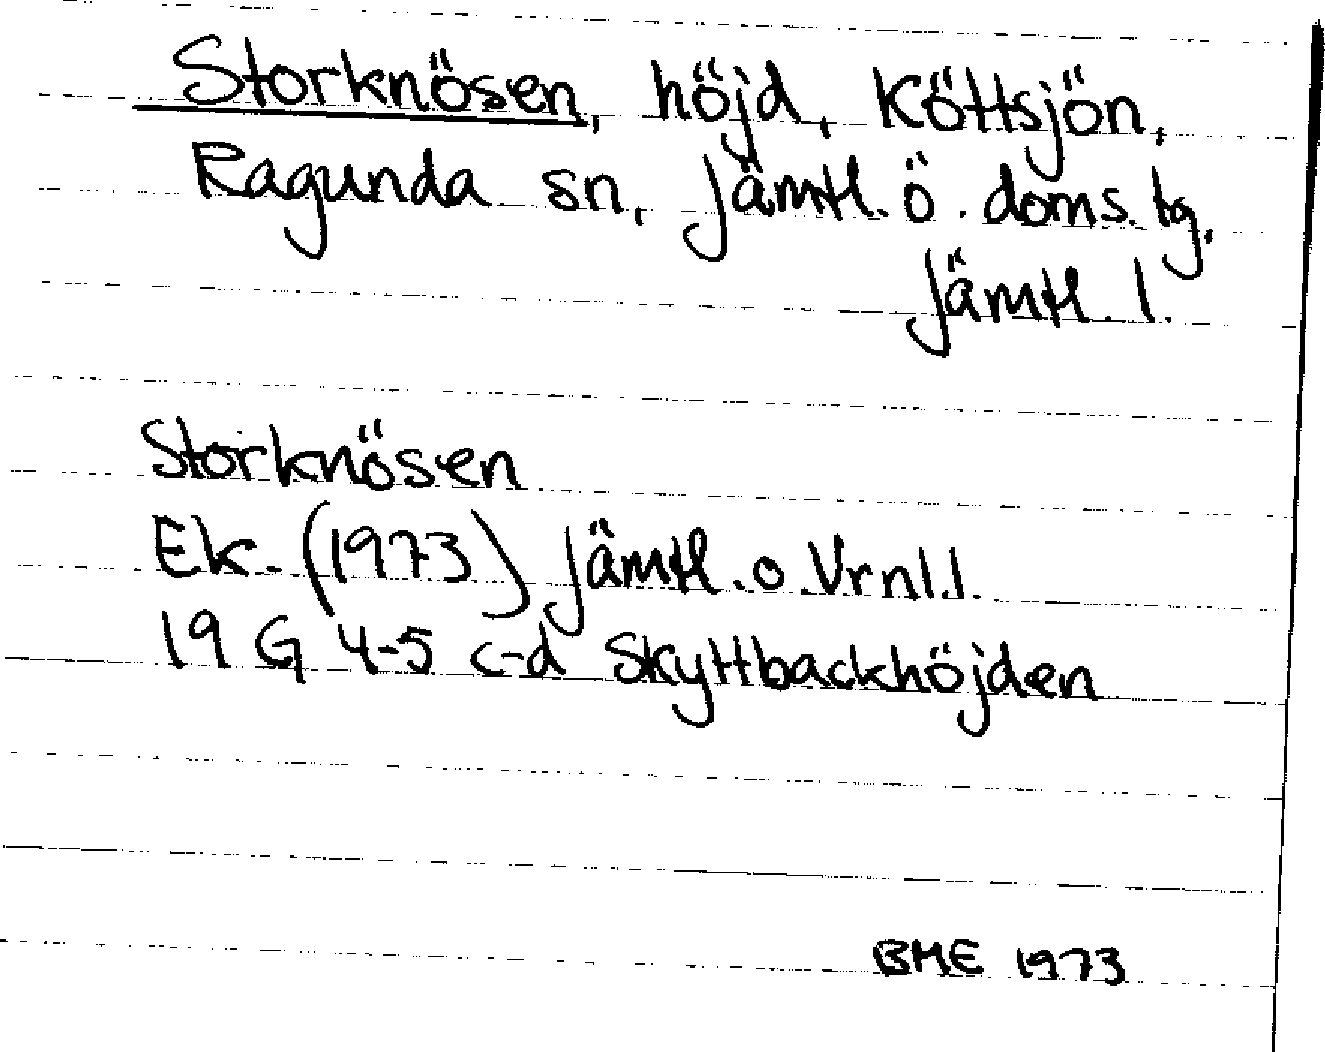 Storknösen, höjd, Köttsjön,
Ragunda sn, Jämtl. ö. doms. tg,
Jämtl. l.
Storknösen
Ek. (1973) Jämtl. o. Vrnl. l.
19 G 4-5 c-d Skyttbackhöjden
BME 1973